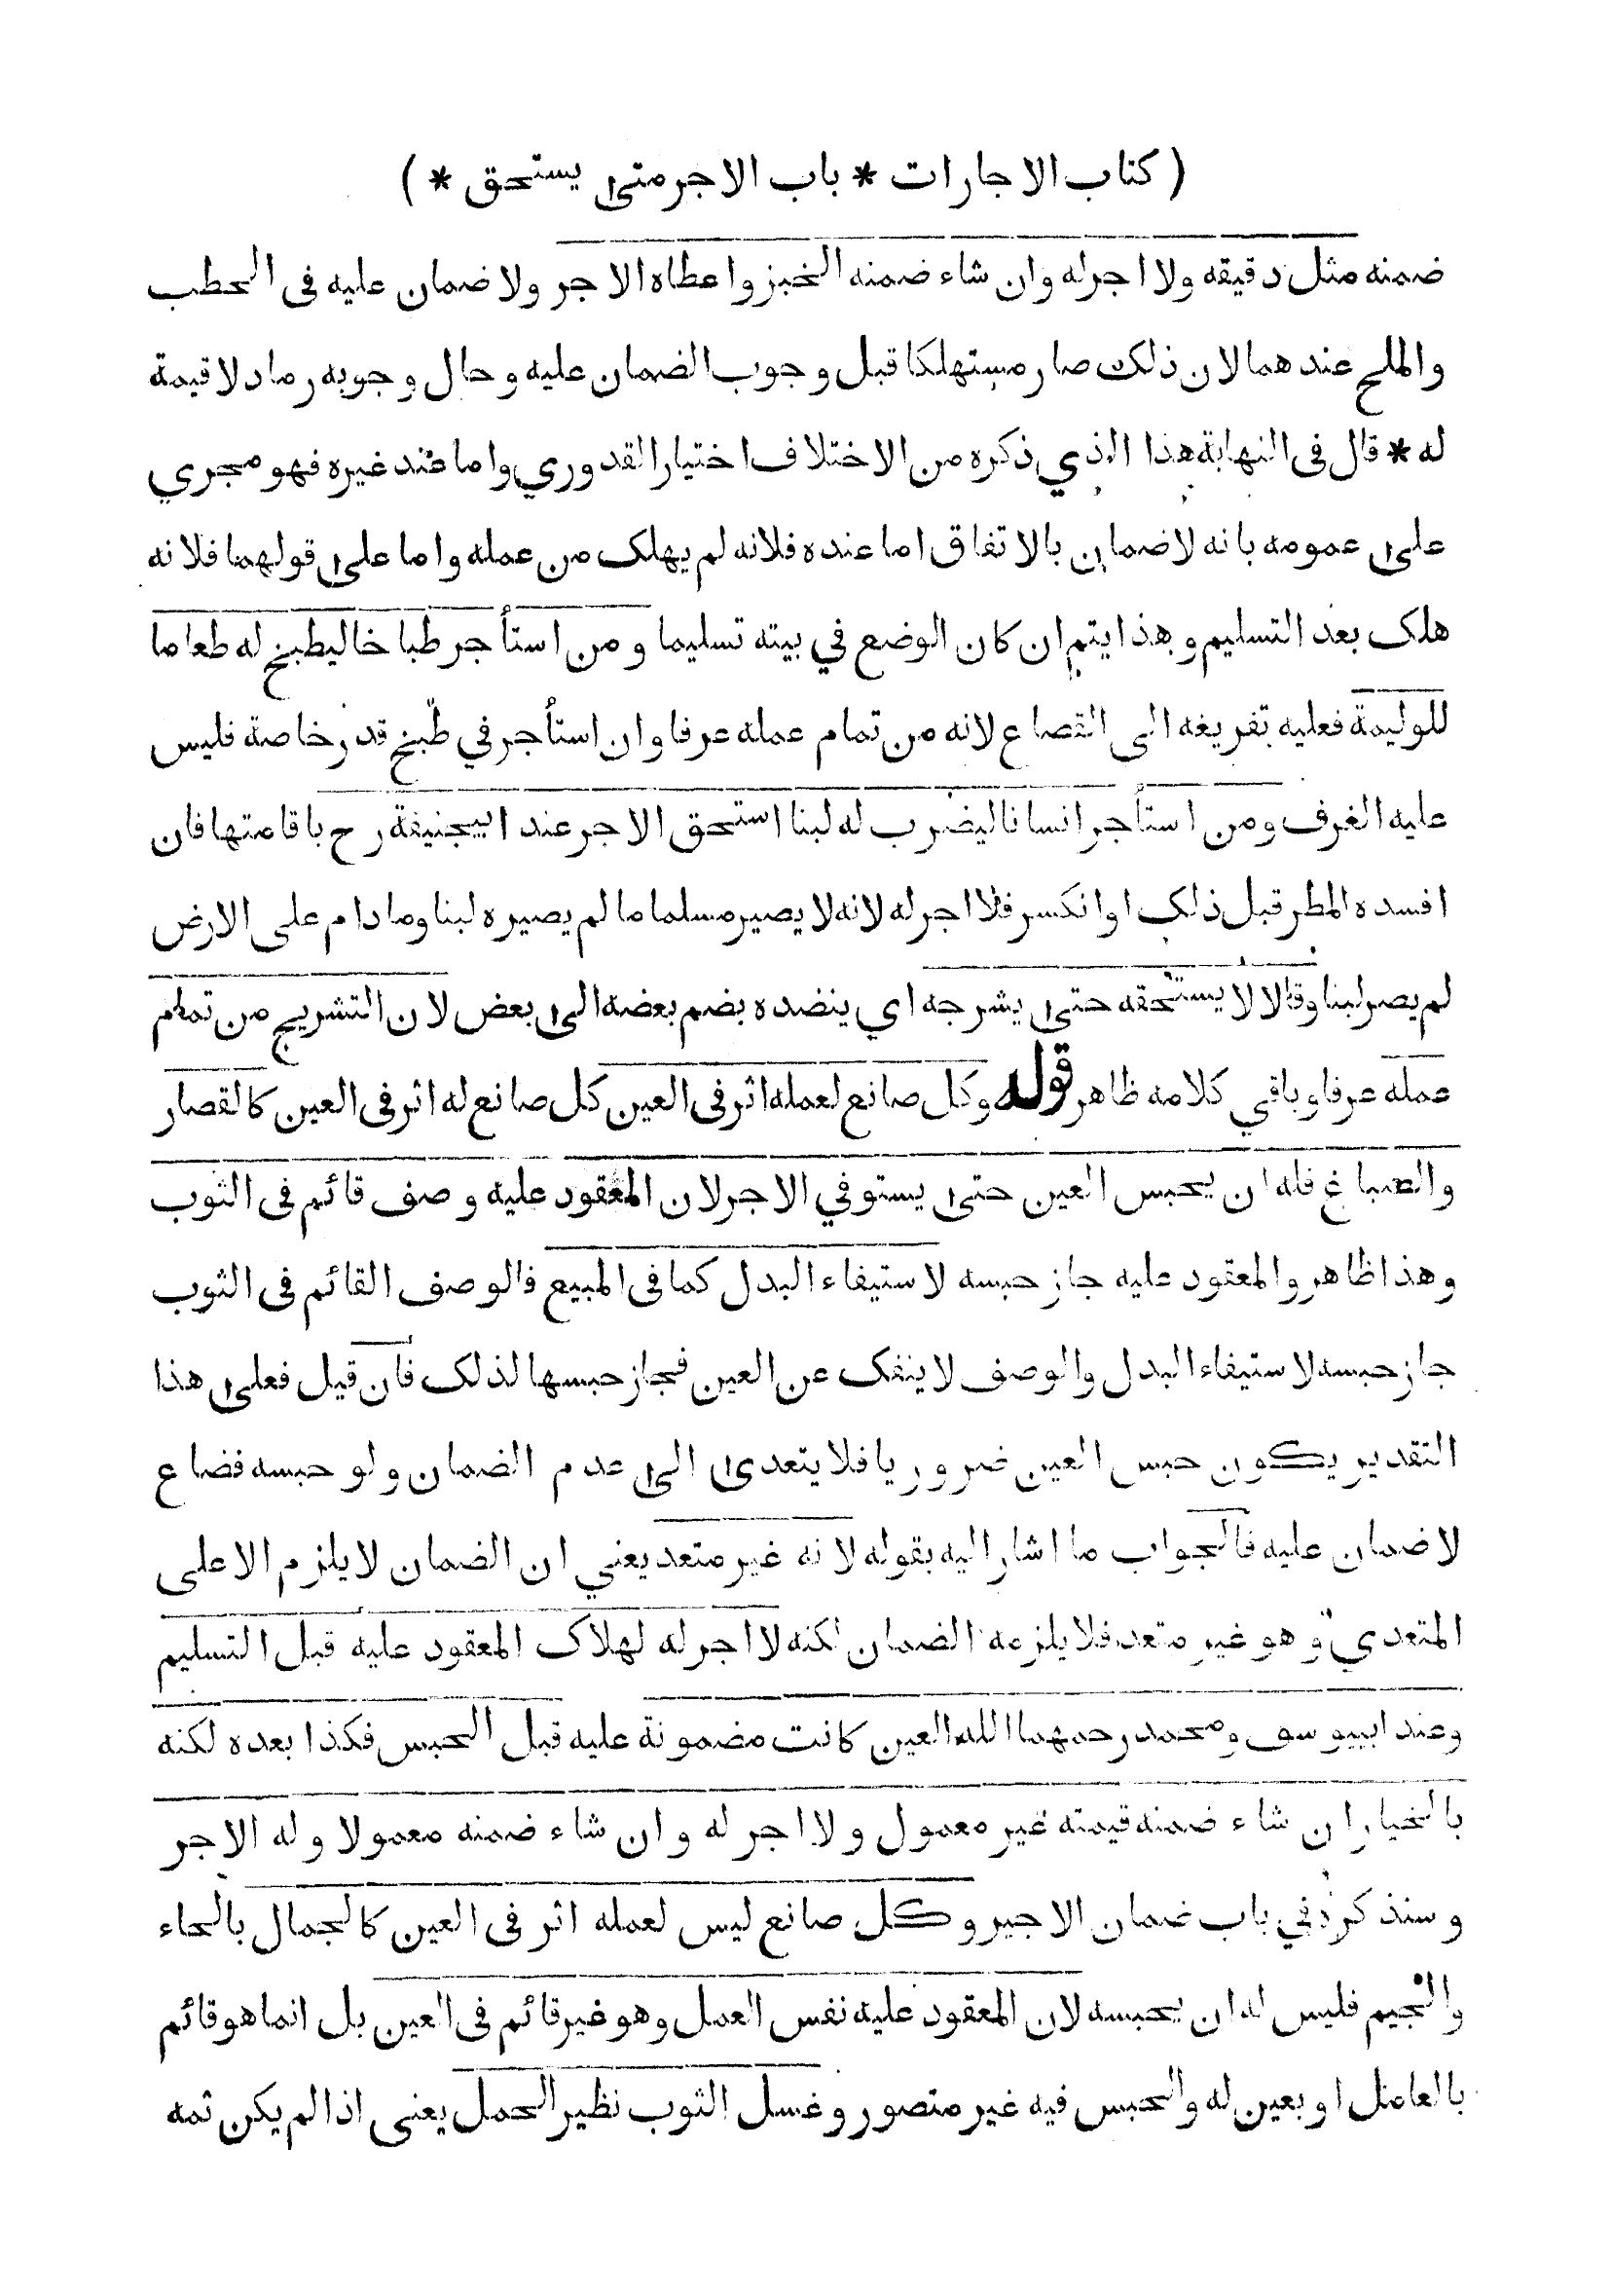 ( كتاب الاجارات * باب الاجر متى يستحق * )
ضمنه مثل دقيقه ولا اجر له وان شاء ضمنه الخبز واعطاه الاجر ولا ضمان عليه فى الحطب
والملح عندهما لان ذلك صار مستهلكا قبل وجوب الضمان عليه وحال وجوبه رماد لا قيمة
له * قال فى النهاية هذا الذي ذكره من الاختلاف اختيار القدوري واما عند غيره فهو مجري
على عمومه بانه لا ضمان بالاتفاق اما عنده فلانه لم يهلك من عمله واما على قولهما فلانه
هلك بعد التسليم وهذا يتم ان كان الوضع في بيته تسليما ومن استأجر طباخا ليطبخ له طعاما
للوليمة فعليه تفريغه الى القصاع لانه من تمام عمله عرفا وان استأجر في طبخ قدر خاصة فليس
عليه الغرف ومن استأجر انسانا ليضرب له لبنا استحق الاجر عند ابيحنيفة رح باقامتها فان
افسده المطر قبل ذلك او انكسر فلا اجر له لانه لا يصير مسلما ما لم يصيره لبنا وما دام على الارض
لم يصر لبنا وقالا لا يستحقه حتى يشرجه اي ينضده بضم بعضه الى بعض لان التشريج من تمام
عمله عرفا وباقي كلامه ظاهر قوله وكل صانع لعمله اثر فى العين كل صانع له اثر فى العين كالقصار
والصباغ فله ان يحبس العين حتى يستوفي الاجر لان المعقود عليه وصف قائم فى الثوب
وهذا ظاهر والمعقود عليه جاز حبسه لاستيفاء البدل كما فى المبيع فالوصف القائم فى الثوب
جاز حبسه لاستيفاء البدل والوصف لا ينفك عن العين فجاز حبسها لذلك فان قيل فعلى هذا
التقدير يكون حبس العين ضروريا فلا يتعدى الى عدم الضمان ولو حبسه فضاع
لا ضمان عليه فالجواب ما اشار اليه بقوله لانه غير متعد يعني ان الضمان لا يلزم الا على
المتعدي وهو غير متعد فلا يلزمه الضمان لكنه لا اجر له لهلاك المعقود عليه قبل التسليم
وعند ابييوسف ومحمد رحمهما الله العين كانت مضمونة عليه قبل الحبس فكذا بعده لكنه
بالخيار ان شاء ضمنه قيمته غير معمول ولا اجر له وان شاء ضمنه معمولا وله الاجر
وسنذكره في باب ضمان الاجير وكل صانع ليس لعمله اثر فى العين كالجمال بالحاء
والجيم فليس له ان يحبسه لان المعقود عليه نفس العمل وهو غير قائم فى العين بل انما هو قائم
بالعامل او بعين له والحبس فيه غير متصور وغسل الثوب نظير الحمل يعنى اذا لم يكن ثمه